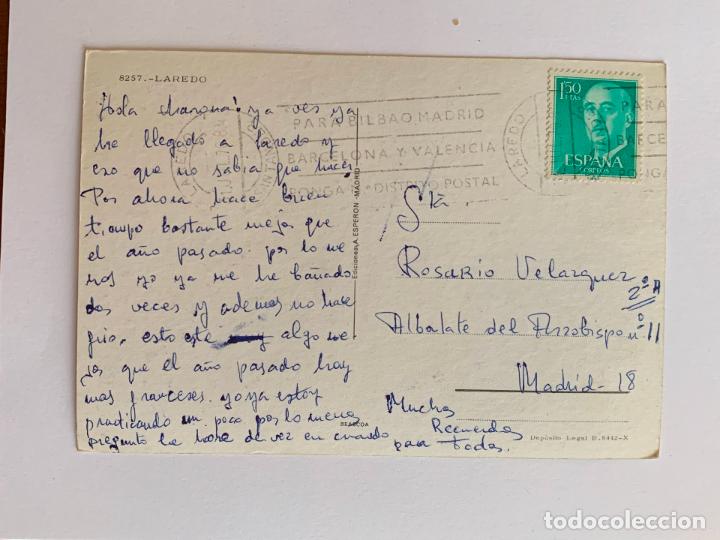 8257.-LAREDO
¡Hola ya ves ya
he llegado a Laredo y
eso que no sabia que hacer.
Por ahora hace buen
tiempo bastante mejor que
el año pasado. por lo me
nos yo ya me he bañado
dos veces y ademas no hace
frio. esto esta algo me
jor que el año pasado hay
mas franceses. yo ya estoy
practicando un poco por lo menos
pregunto la hora de vez en cuando
Muchos
Recuerdos
para todos.
Ediciones A. ESPERON - MADRID
PARA BILBAO, MADRID
BARCELONA Y VALENCIA
PONGA Nº DISTRITO POSTAL
LAREDO
PARA
BARCE
PONGA
1,50
PTAS
ESPAÑA
CORREOS
Srta
Rosario Velazquez
2º A
Albalate del Arzobispo nº 11
Madrid-18
Depósito Legal B. 8442-X
todocoleccion.net